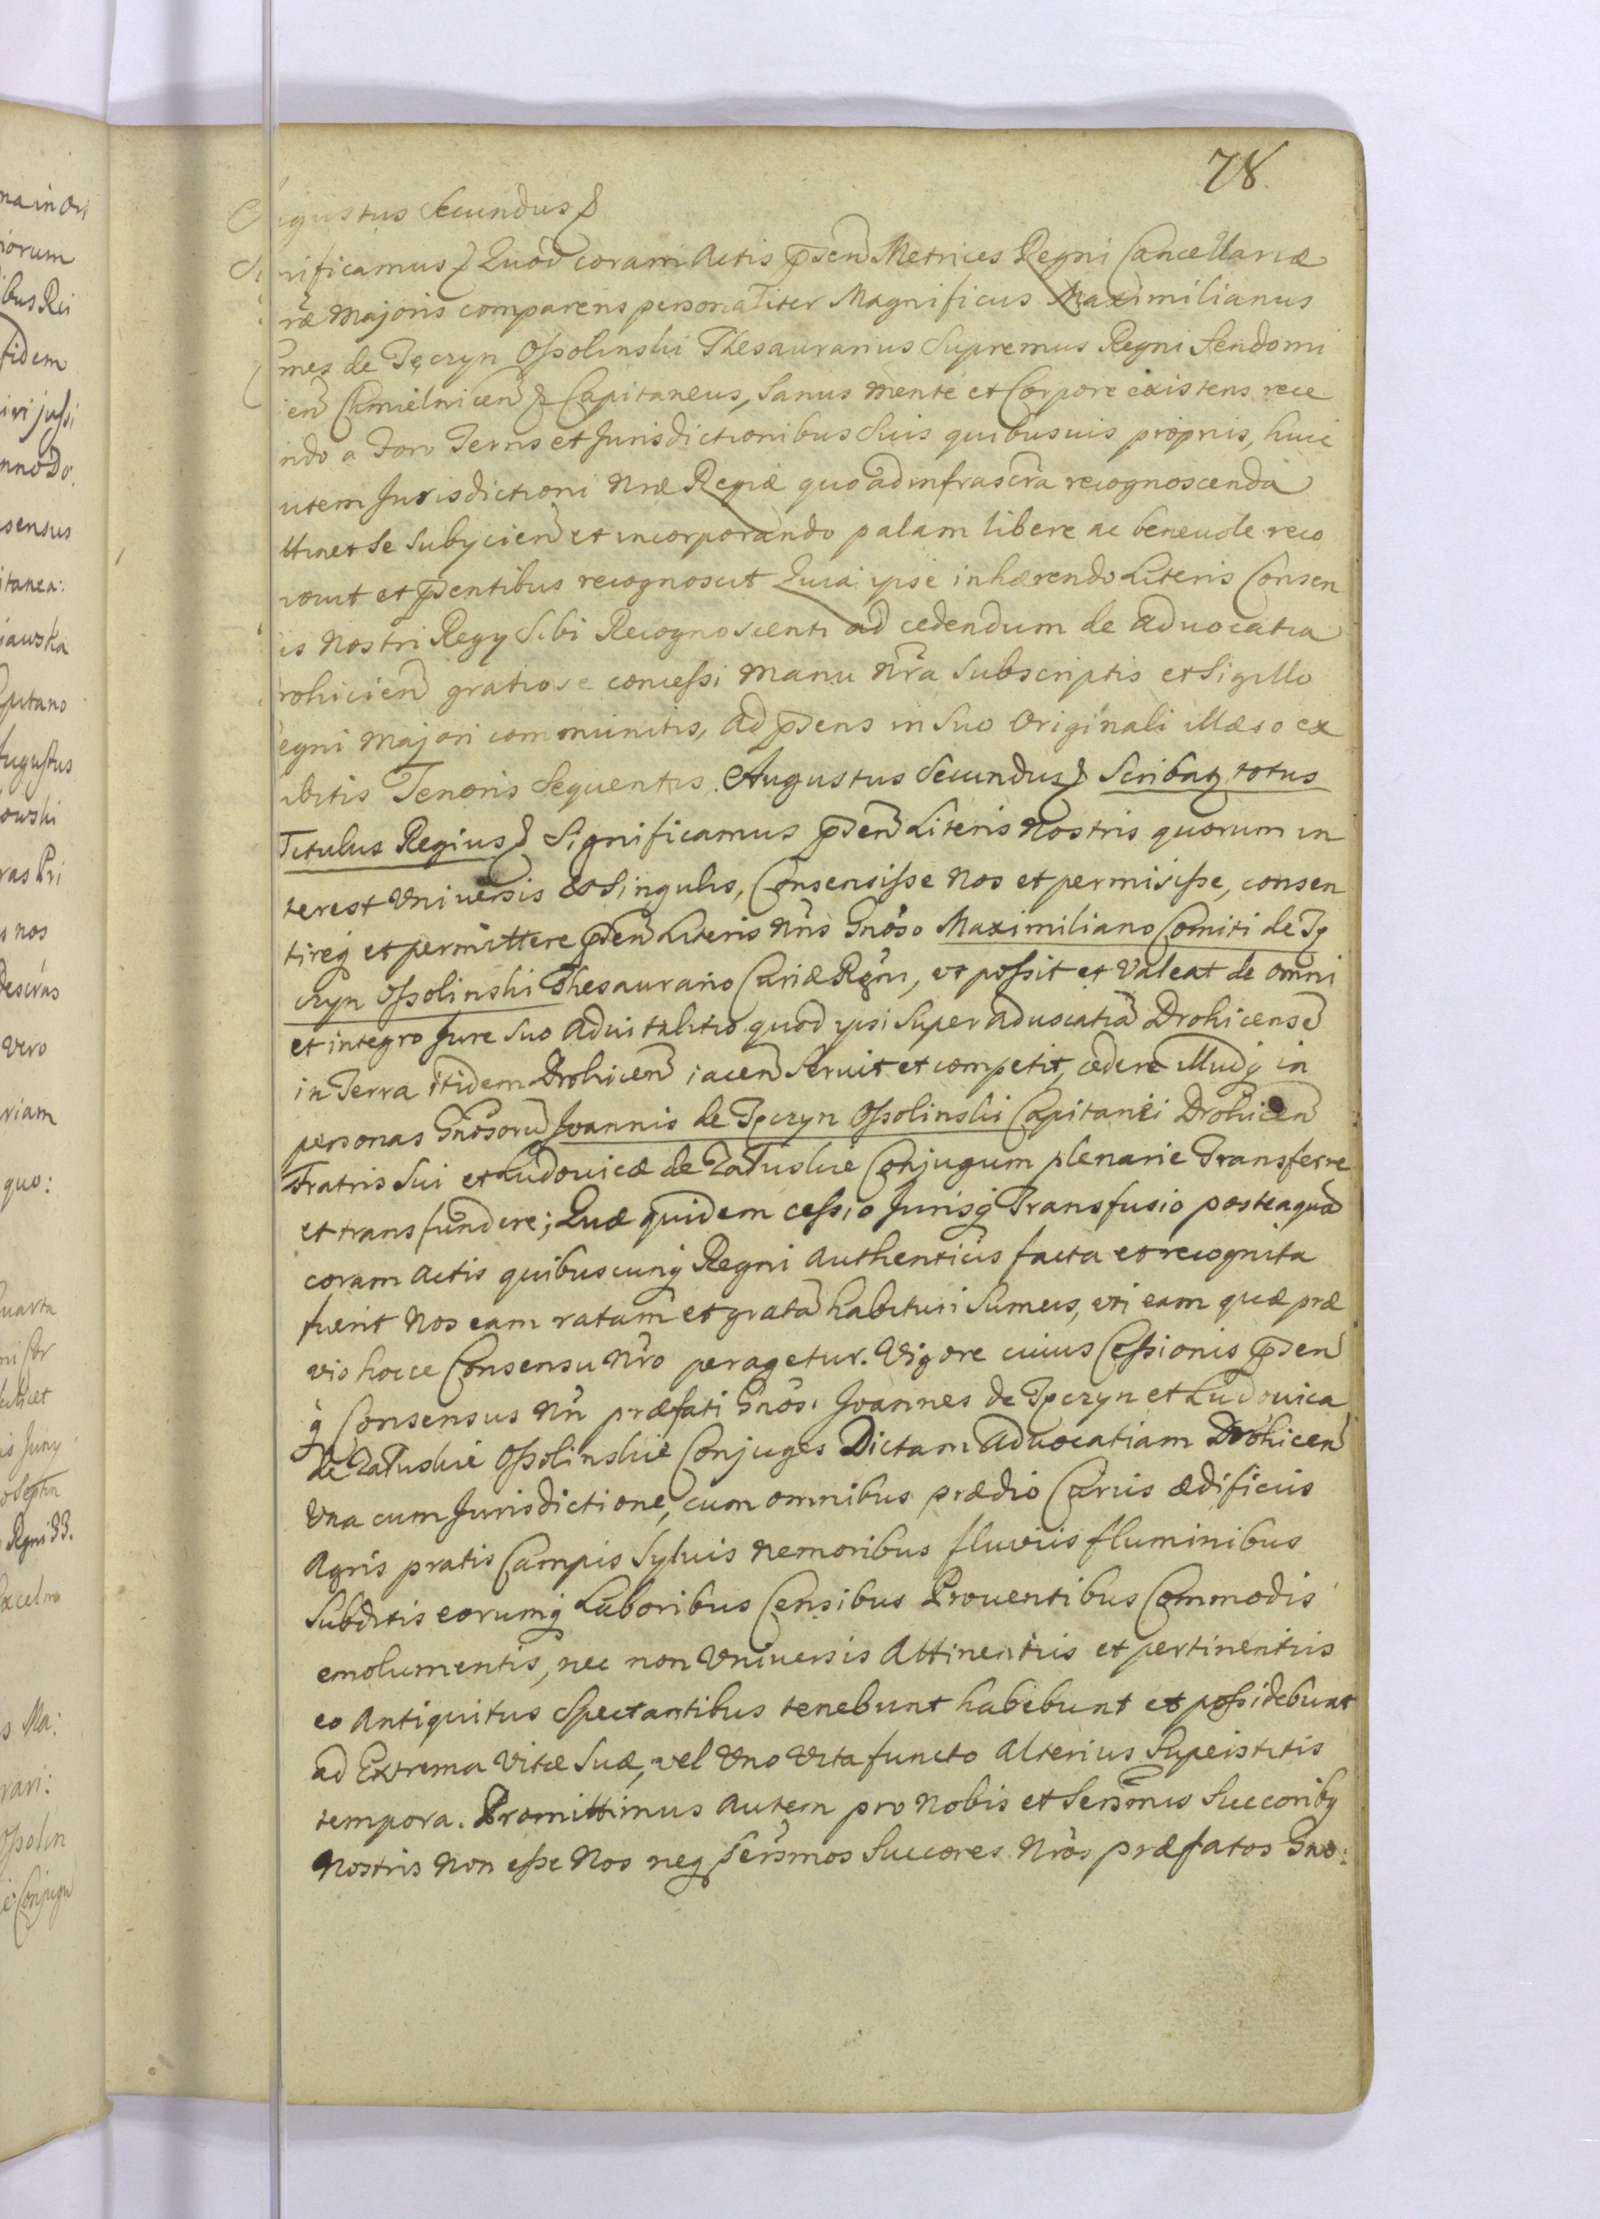 78.
Augustus Secundus
Significamus Quod coram Actis pñsen Metrices Regni Cancellariæ
ræ Majoris comparens personaliter Magnificus Maximilianus
mes de Tęczyn Ossolinski Thesaurarius Supremus Regni Sendomi
ien Chmielnicen & Capitaneus, Sanus mente et Corpore existens rece
ndo a Foro Terris et Jurisdictionibus Suis quibusuis proprijs, huic
utem Jurisdictioni Nræ Regiæ quo ad infrascra recognoscenda
ttinet Se Subycien et incorporando palam libere ac beneuole reco
vouit et pñsentibus recognoscit Quia ipse inhærendo Literis Consen
is Nostri Regy Sibi Recognoscenti ad cedendum de Aduocatia
rohicien gratiose concessi Manu Nra Subscriptis et Sigillo
egni Majori communitis, Ad pñsens in Suo Originali illæso ex
ibitis Tenoris Sequentis. Augustus Secundus Scribatq totus
Titulus Regius Significamus pñsen Literis Nostris quorum in
terest Vniversis & Singulis, Consensisse Nos et permisisse, consen
tireq et permittere pñsen Literis Nris Gnoso Maximiliano Comiti de Tę
czyn Ossolinski Thesaurario Curiæ Regni, vt possit et Valeat de omni
et integro Jure Suo Aduitalitio quod ipsi Super Aduocatia Drohicense
in Terra itidem Drohicen iacen Seruit et competit, cedere illudq in
personas Gnosoru Joannis de Tęczyn Ossolinski Capitanei Drohicen
Fratris Sui et Ludouicæ de Załuskie Conjugum plenarie Transferre
et transfundere; Quæ quidem cessio Jurisq Transfusio posteaqua
coram Actis quibuscunq Regni Authenticis facta et recognita
fuerit Nos eam ratam et grata habituri Sumus, vti eam quæ præ
vio hocce Consensu Nro peragetur. Vigore cuius Cessionis pñsen
q Consensus Nri præfati Gnos. Joannes de Tęczyn et Ludouica
de Załuskie Ossolinskie Conjuges Dictam Aduocatiam Drohicen
Vna cum Jurisdictione, cum omnibus prædio Curiis ædificiis
Agris pratis Campis Syluis Nemoribus fluviis fluminibus
Subditis eorumq Laboribus Censibus Prouentibus Commodis
emolumentis, nec non Vniuersis Attinentiis et pertinentiis
eo Antiquitus Spectantibus tenebunt habebunt et possidebunt
ad Extrema Vitæ Suæ, vel Vno Vita functo Alterius Superstitis
tempora. Promittimus Autem pro Nobis et Sermis Succoribq
Nostris Non esse Nos neq Sermos Succores Nros præfatos Gno: